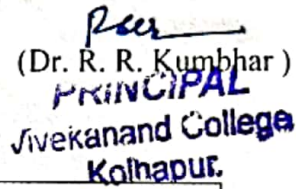 (Dr. R. R. Kumbhar )
PRINCIPAL
Vivekanand College
Kolhapur.